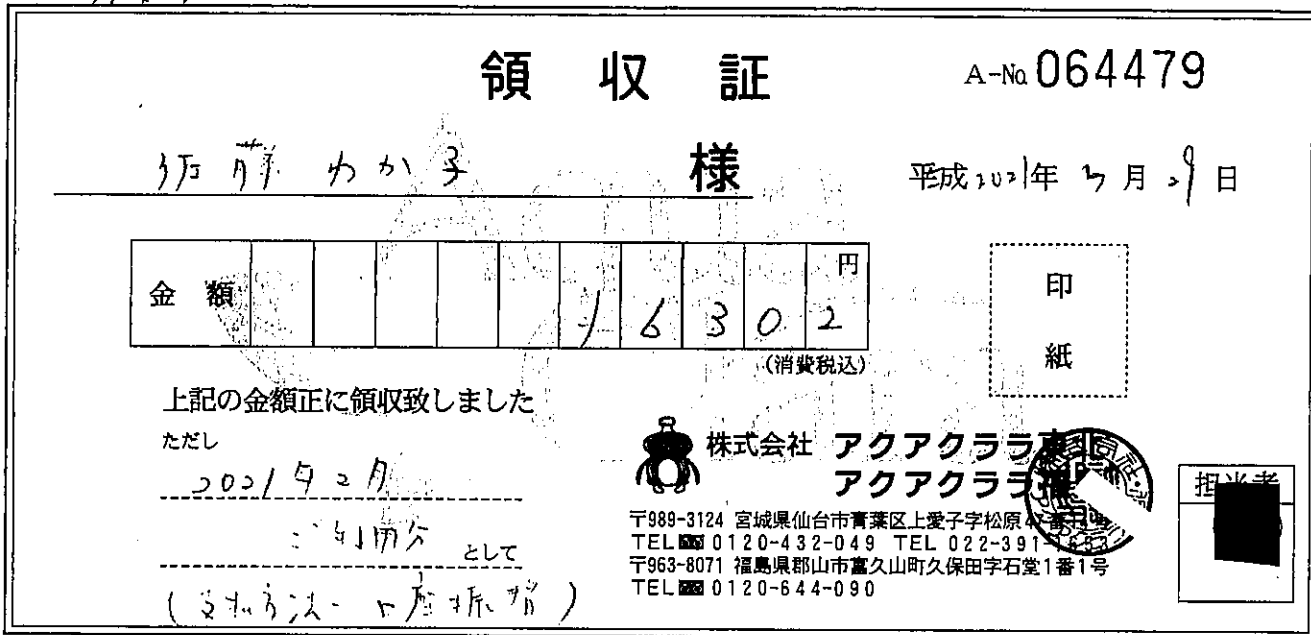 領収証
A-No 064479
佐藤 わか子 様
平成2021年3月29日
金額 16302円
(消費税込)
印紙
上記の金額正に領収致しました
ただし
2021年2月
ご利用分 として
(支払方法-口座振替)
株式会社 アクアクララ東北
アクアクララ
〒989-3124 宮城県仙台市青葉区上愛子字松原47番
TEL 0120-432-049 TEL 022-391-
〒963-8071 福島県郡山市富久山町久保田字石堂1番1号
TEL 0120-644-090
担当者